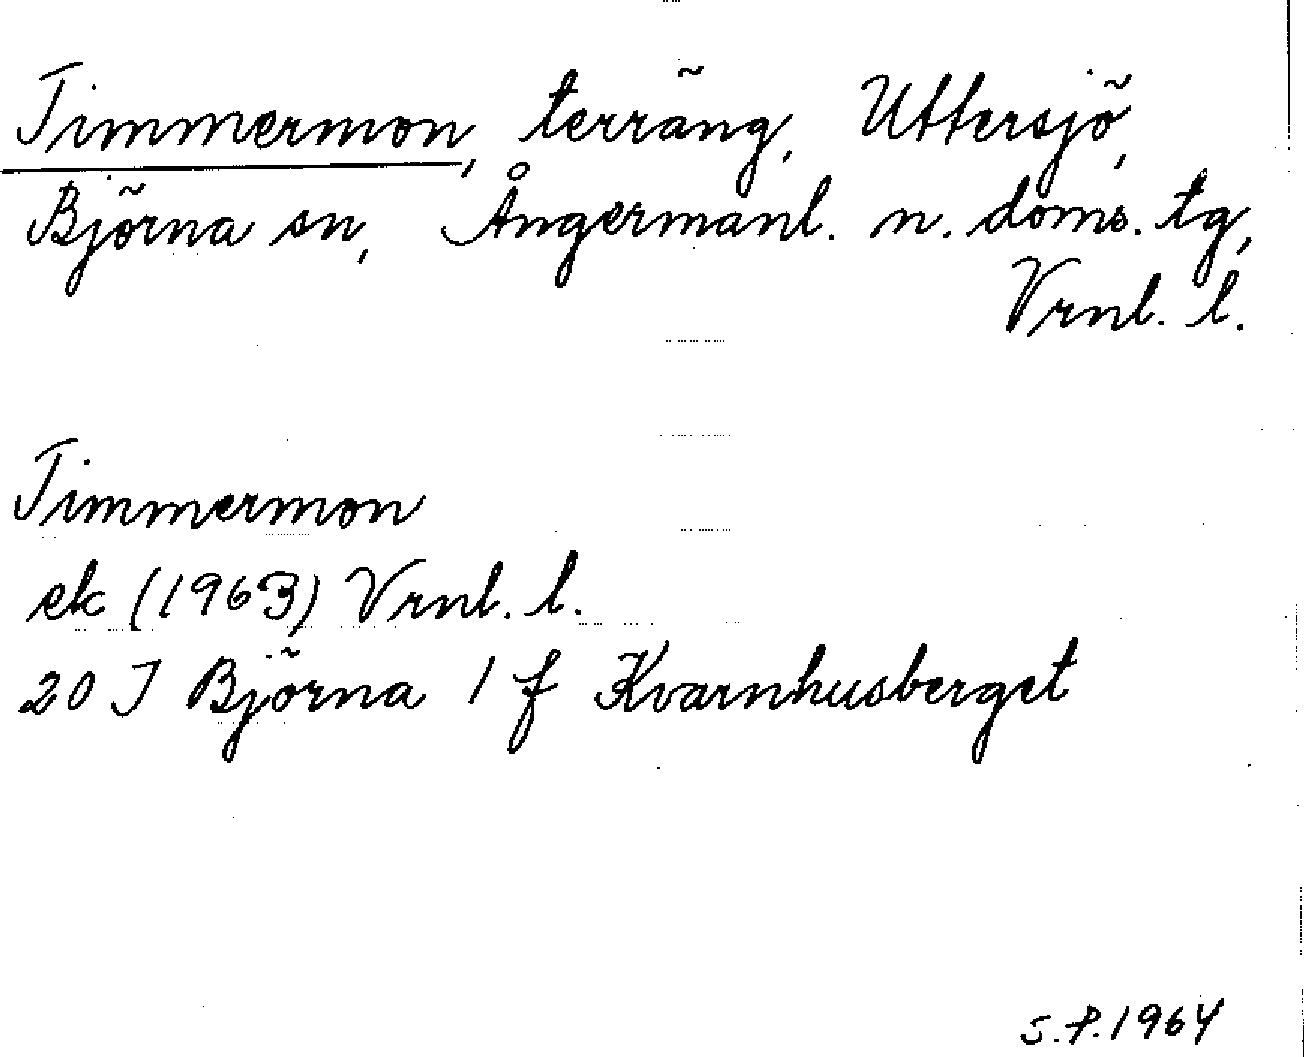 Timmermon, terräng, Uttersjö,
Björna sn, Ångermanl. n. doms. tg,
Vrnl. l.
Timmermon
ek (1963) Vrnl. l.
20 J Björna 1 f Kvarnhusberget
S.P. 1964